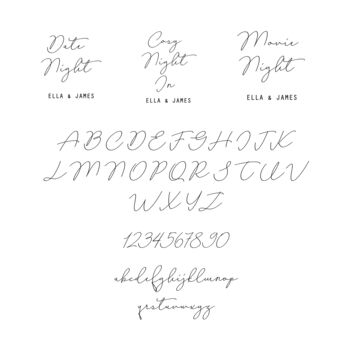 Date
Night
ELLA & JAMES
Cosy
Night
In
ELLA & JAMES
Movie
Night
ELLA & JAMES
ABCDEFGHIJK
LMNOPQRSTUV
WXYZ
1234567890
abcdefghijklmnop
qrstuvwxyz